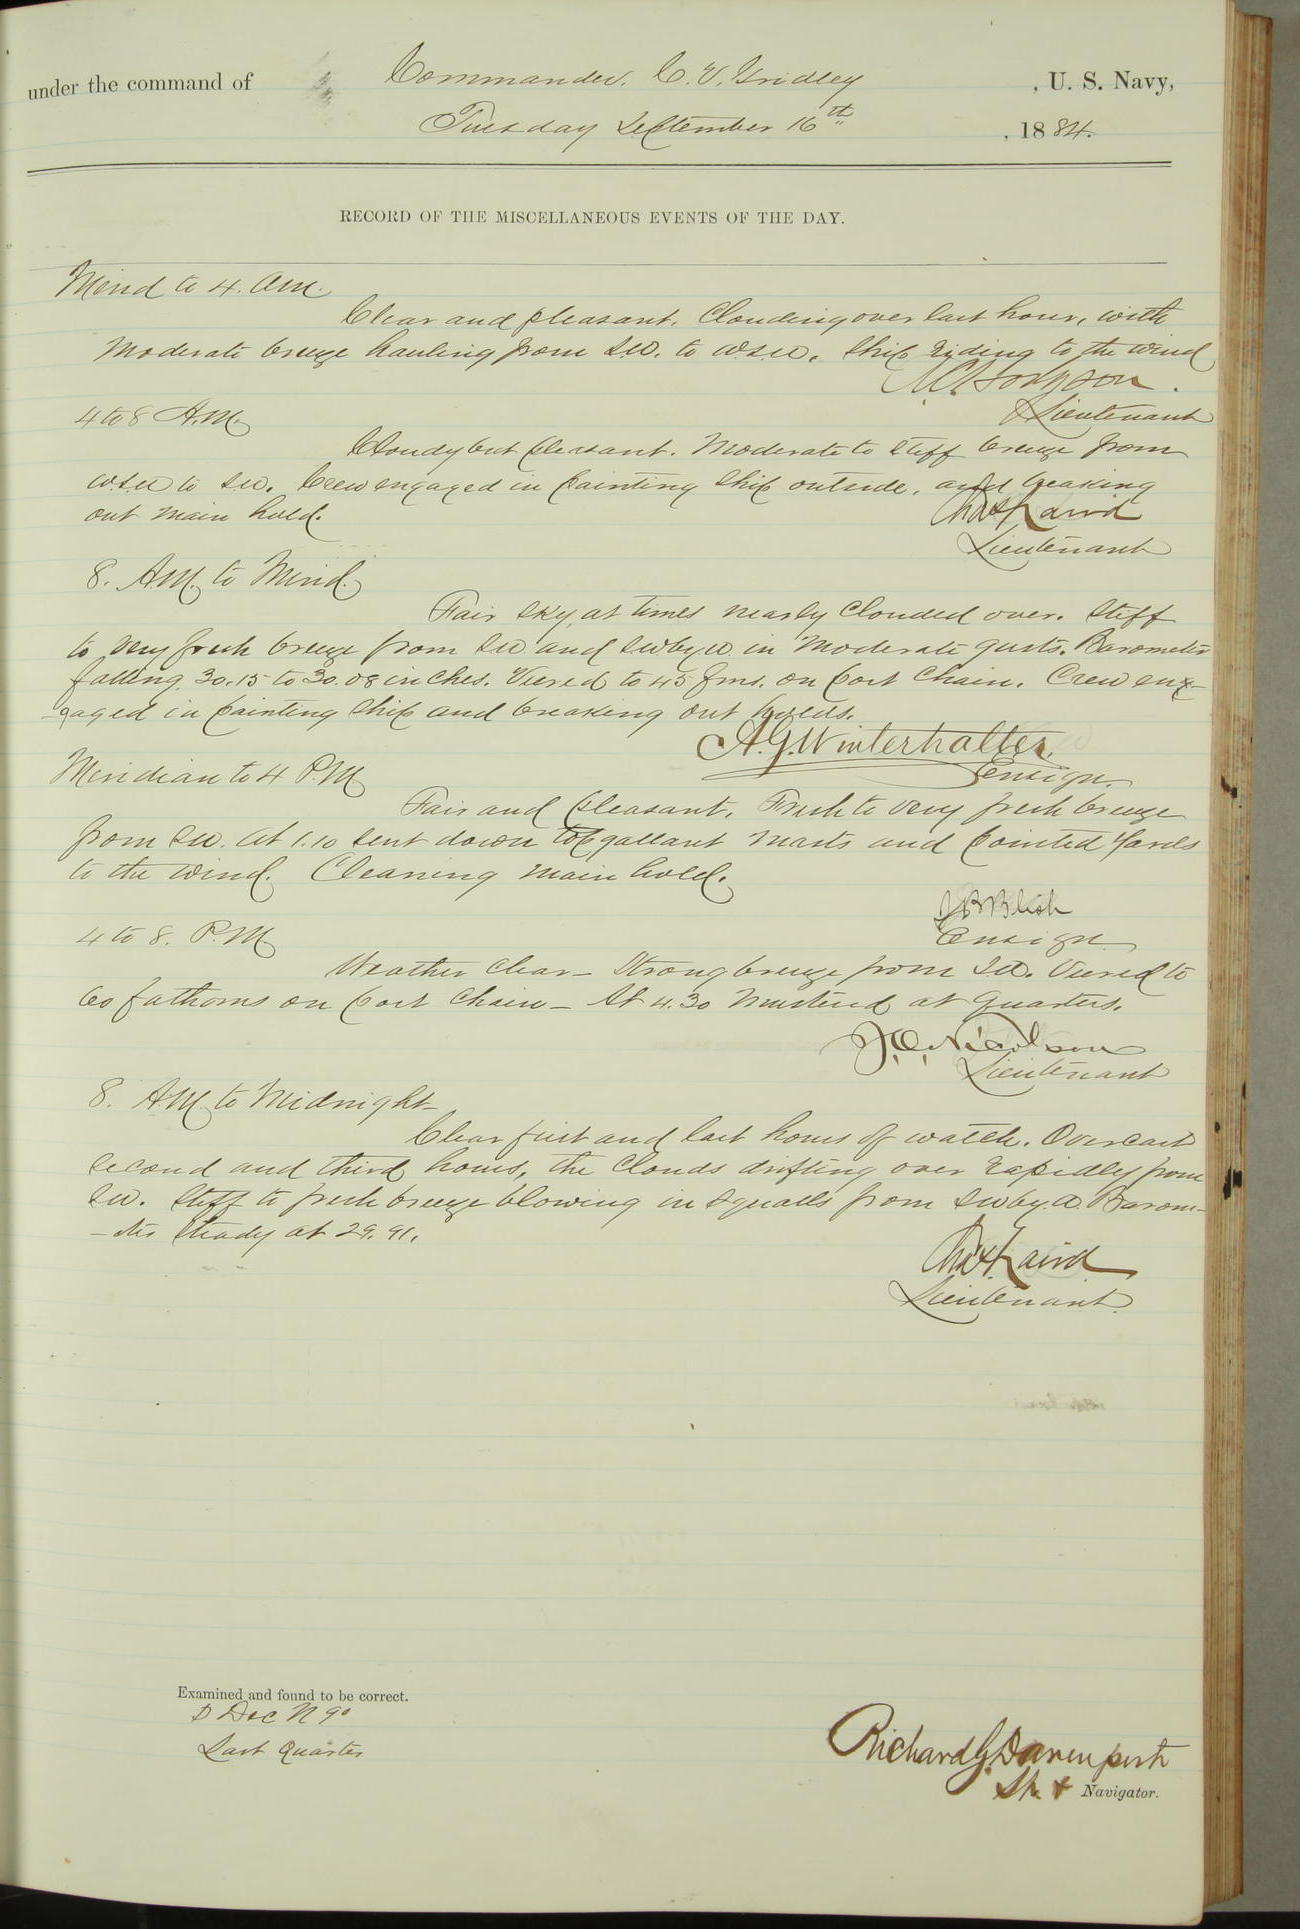 under the command of Commander. C. V. Gridley , U. S. Navy,
Tuesday September 16th , 1884.
RECORD OF THE MISCELLANEOUS EVENTS OF THE DAY.
Merid to 4. A.M.
Clear and pleasant. Clouding over last hour, with
moderate breeze hauling from SW. to WSW. Ship riding to the wind
Lieutenant
4 to 8 A.M.
Cloudy but pleasant. Moderate to stiff breeze from
WSW to SW. Crew engaged in painting ship outside, and breaking
out main hold.
Chas Laird
Lieutenant
8. A.M. to Merid.
Fair sky, at times nearly clouded over. Stiff
to very fresh breeze from SW and SWbyW in moderate gusts. Barometer
falling 30.15 to 30.08 inches. Veered to 45 fms. on port chain. Crew eng-
-gaged in painting ship and breaking out holds.
A.G. Winterhalter.
Ensign.
Meridian to 4 P.M
Fair and pleasant. Fresh to very fresh breeze
from SW. At 1.10 sent down topgallant masts and pointed yards
to the wind. Cleaning main hold.
J B Blish
Ensign
4 to 8. P.M
Weather clear - Strong breeze from SW. Veered to
60 fathoms on port chain - At 4.30 mustered at quarters.
J.O. Nicolson
Lieutenant
8. A.M. to Midnight -
Clear first and last hours of watch. Overcast
second and third hours, the clouds drifting over rapidly from
SW. Stiff to fresh breeze blowing in squalls from SWby.W. Barom-
-eter steady at 29.91.
Chas Laird
Lieutenant.
Examined and found to be correct.
D Dec N 90
Last Quarter
Richard G. Davenport
Lt. & Navigator.